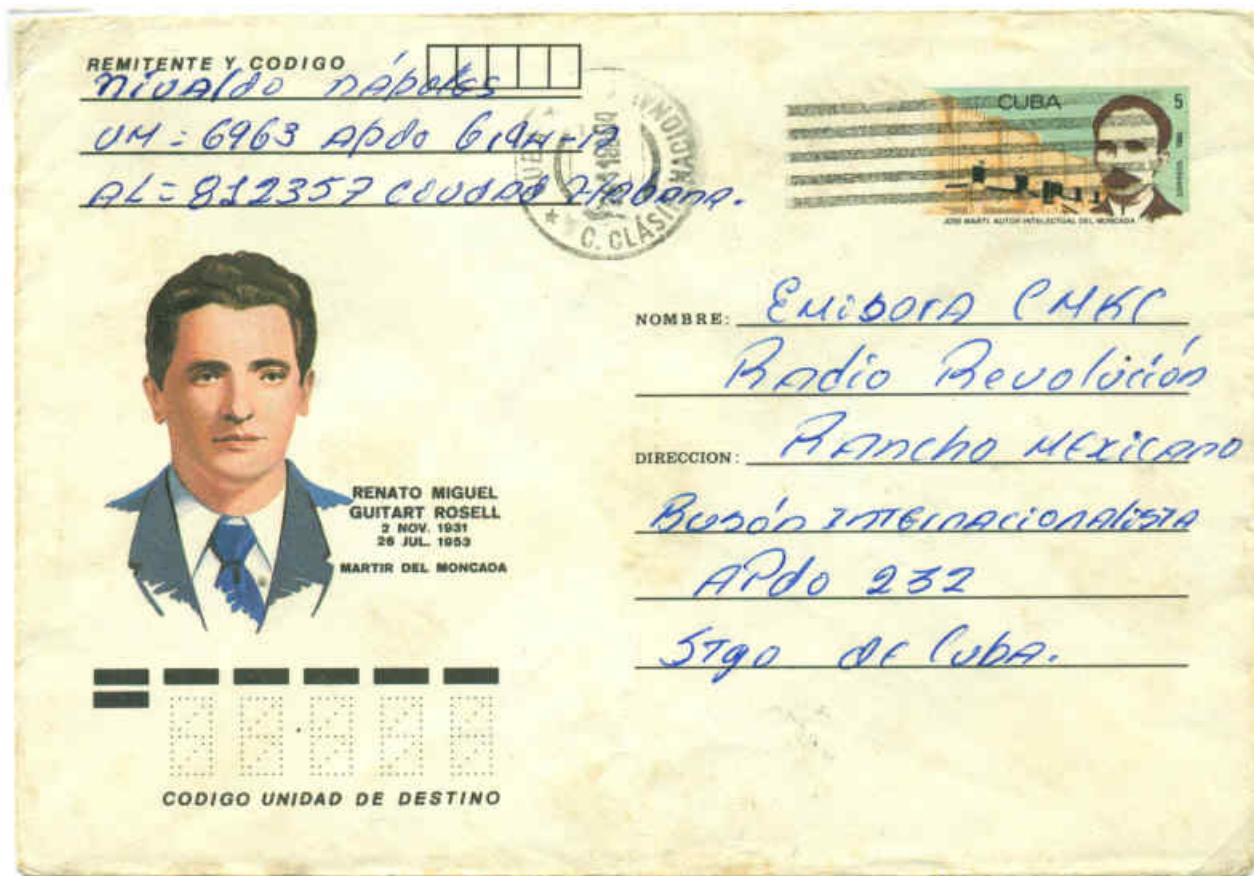 REMITENTE Y CODIGO
Nivaldo Nápoles
UM = 6963 APdo
AL = 812357 Ciudad Habana.
CUBA
5
JOSE MARTI. AUTOR INTELECTUAL DEL MONCADA
C. CLÁSI
NOMBRE: Emisora CMKC
Radio Revolución
DIRECCION: Rancho Mexicano
Busón Internacionalista
APdo 232
Stgo de Cuba.
RENATO MIGUEL
GUITART ROSELL
2 NOV. 1931
26 JUL. 1953
MARTIR DEL MONCADA
CODIGO UNIDAD DE DESTINO